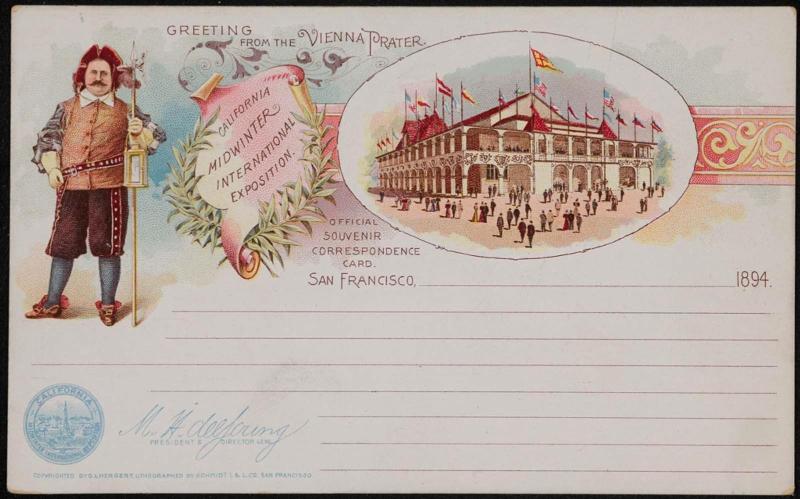 GREETING
FROM THE VIENNA PRATER.
CALIFORNIA
MIDWINTER
INTERNATIONAL
EXPOSITION.
OFFICIAL
SOUVENIR
CORRESPONDENCE
CARD.
SAN FRANCISCO, 1894.
CALIFORNIA
MIDWINTER INTERNATIONAL
M. H. de Young
PRESIDENT & DIRECTOR GENL.
COPYRIGHTED BY G. L. HERGERT, LITHOGRAPHED BY SCHMIDT L. & L. CO. SAN FRANCISCO.